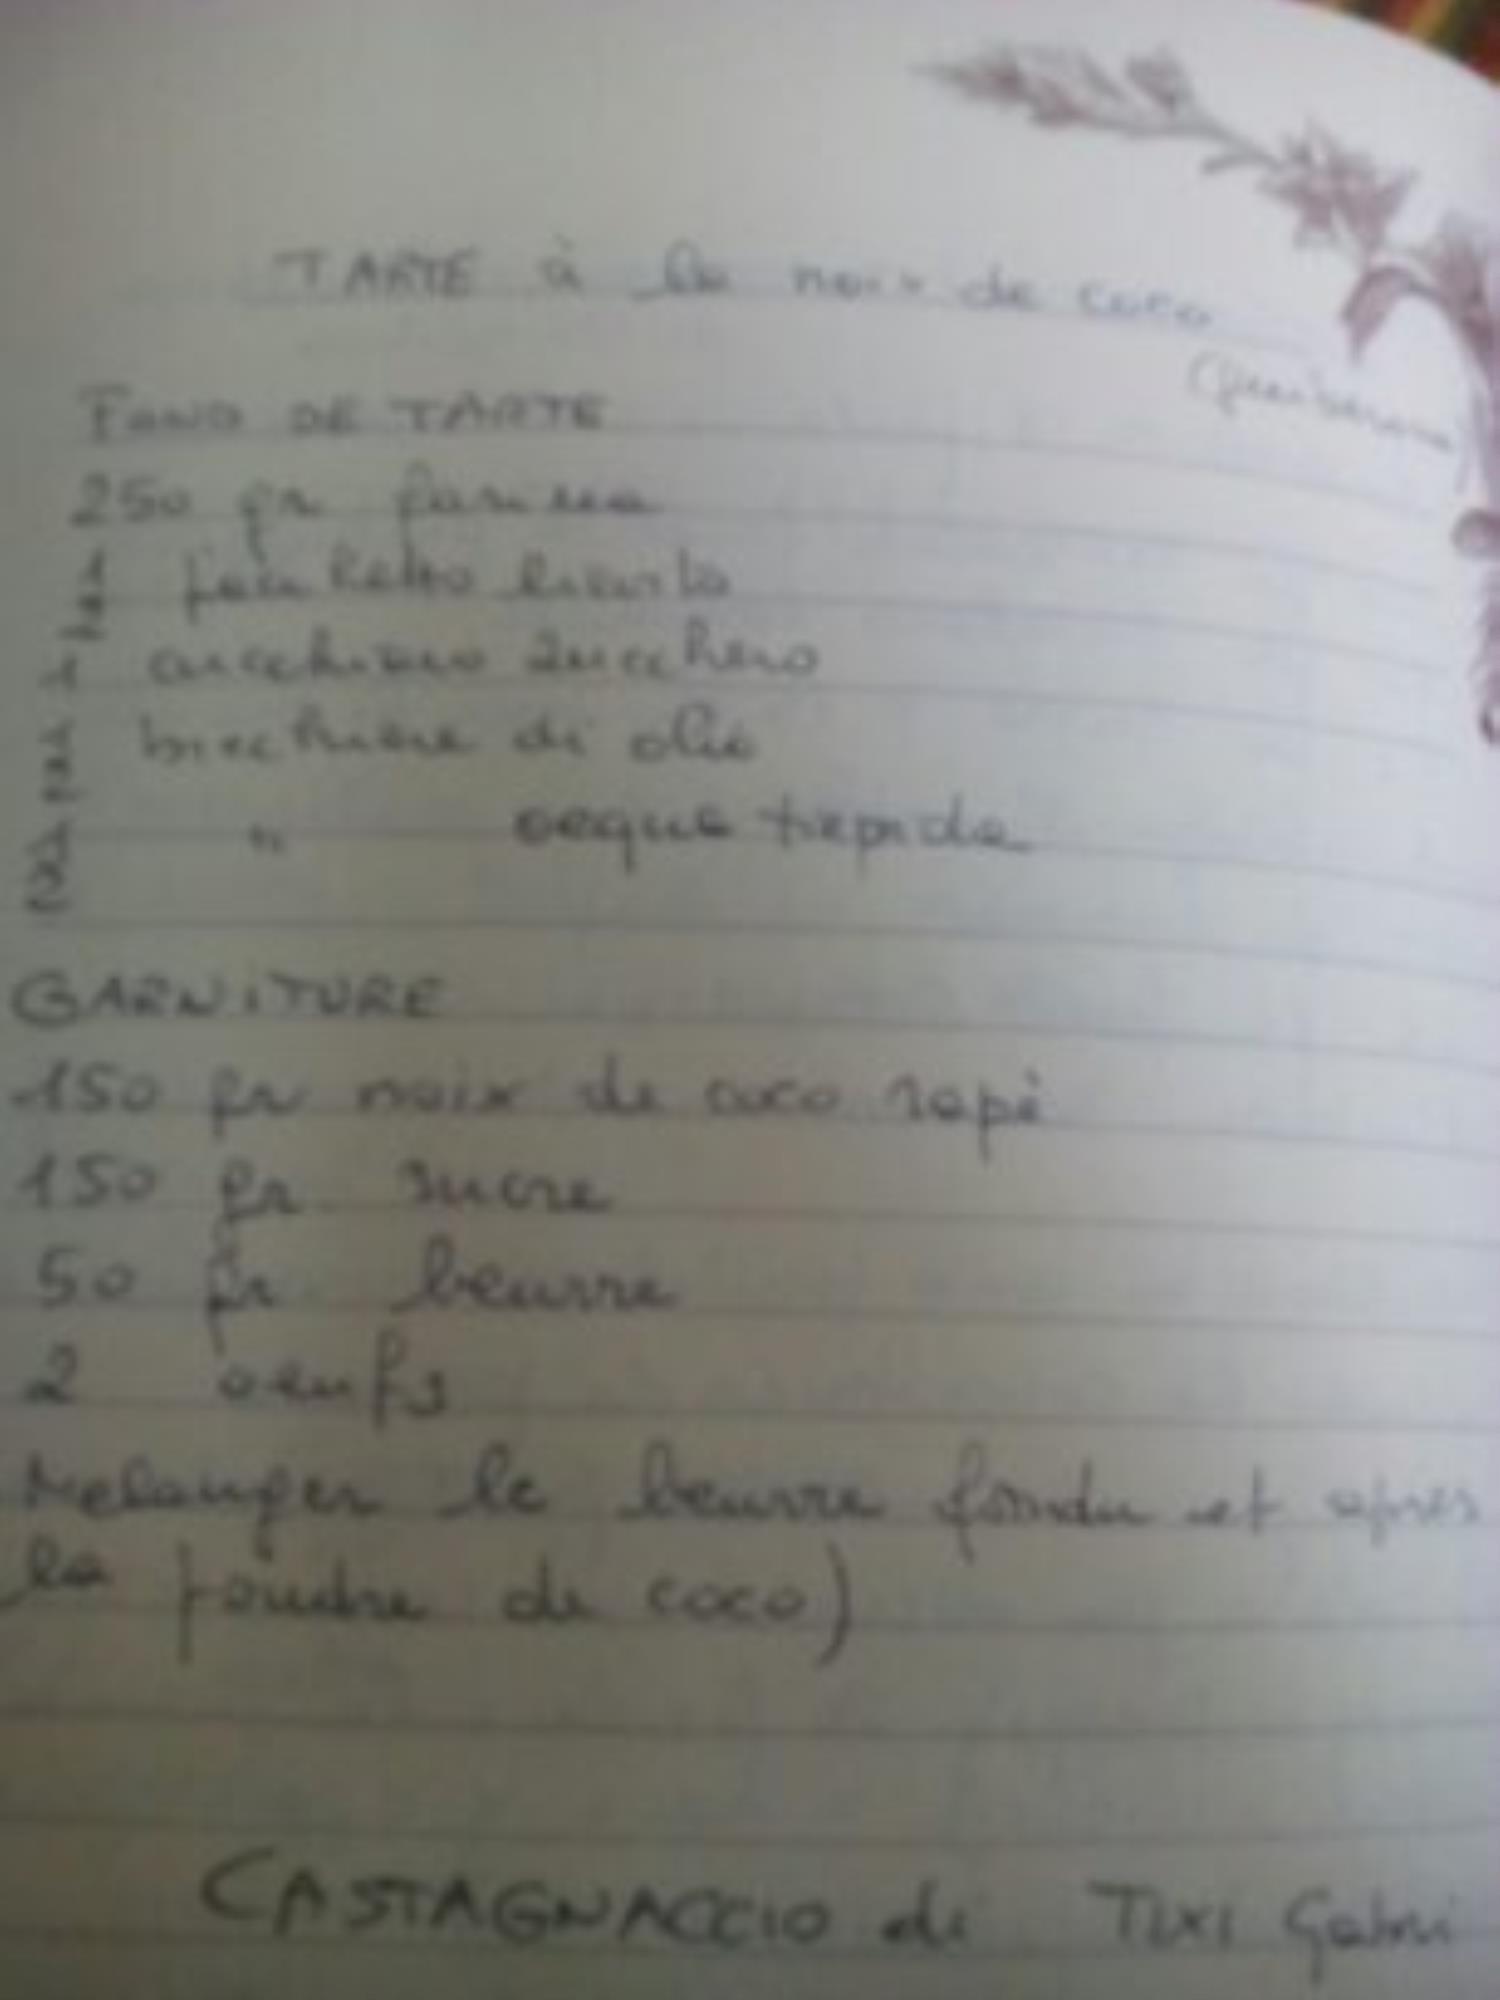 TARTE à la noix de coco
FOND DE TARTE
250 gr farina
1/2 pacchetto lievito
1 cucchiaio zucchero
bicchiere di olio
" acqua tiepida
GARNITURE
150 gr noix de coco rapè
150 gr sucre
50 gr beurre
2 oeufs
Melanger le beurre fondu et apres
la poudre de coco)
CASTAGNACCIO di Tixi Gabri